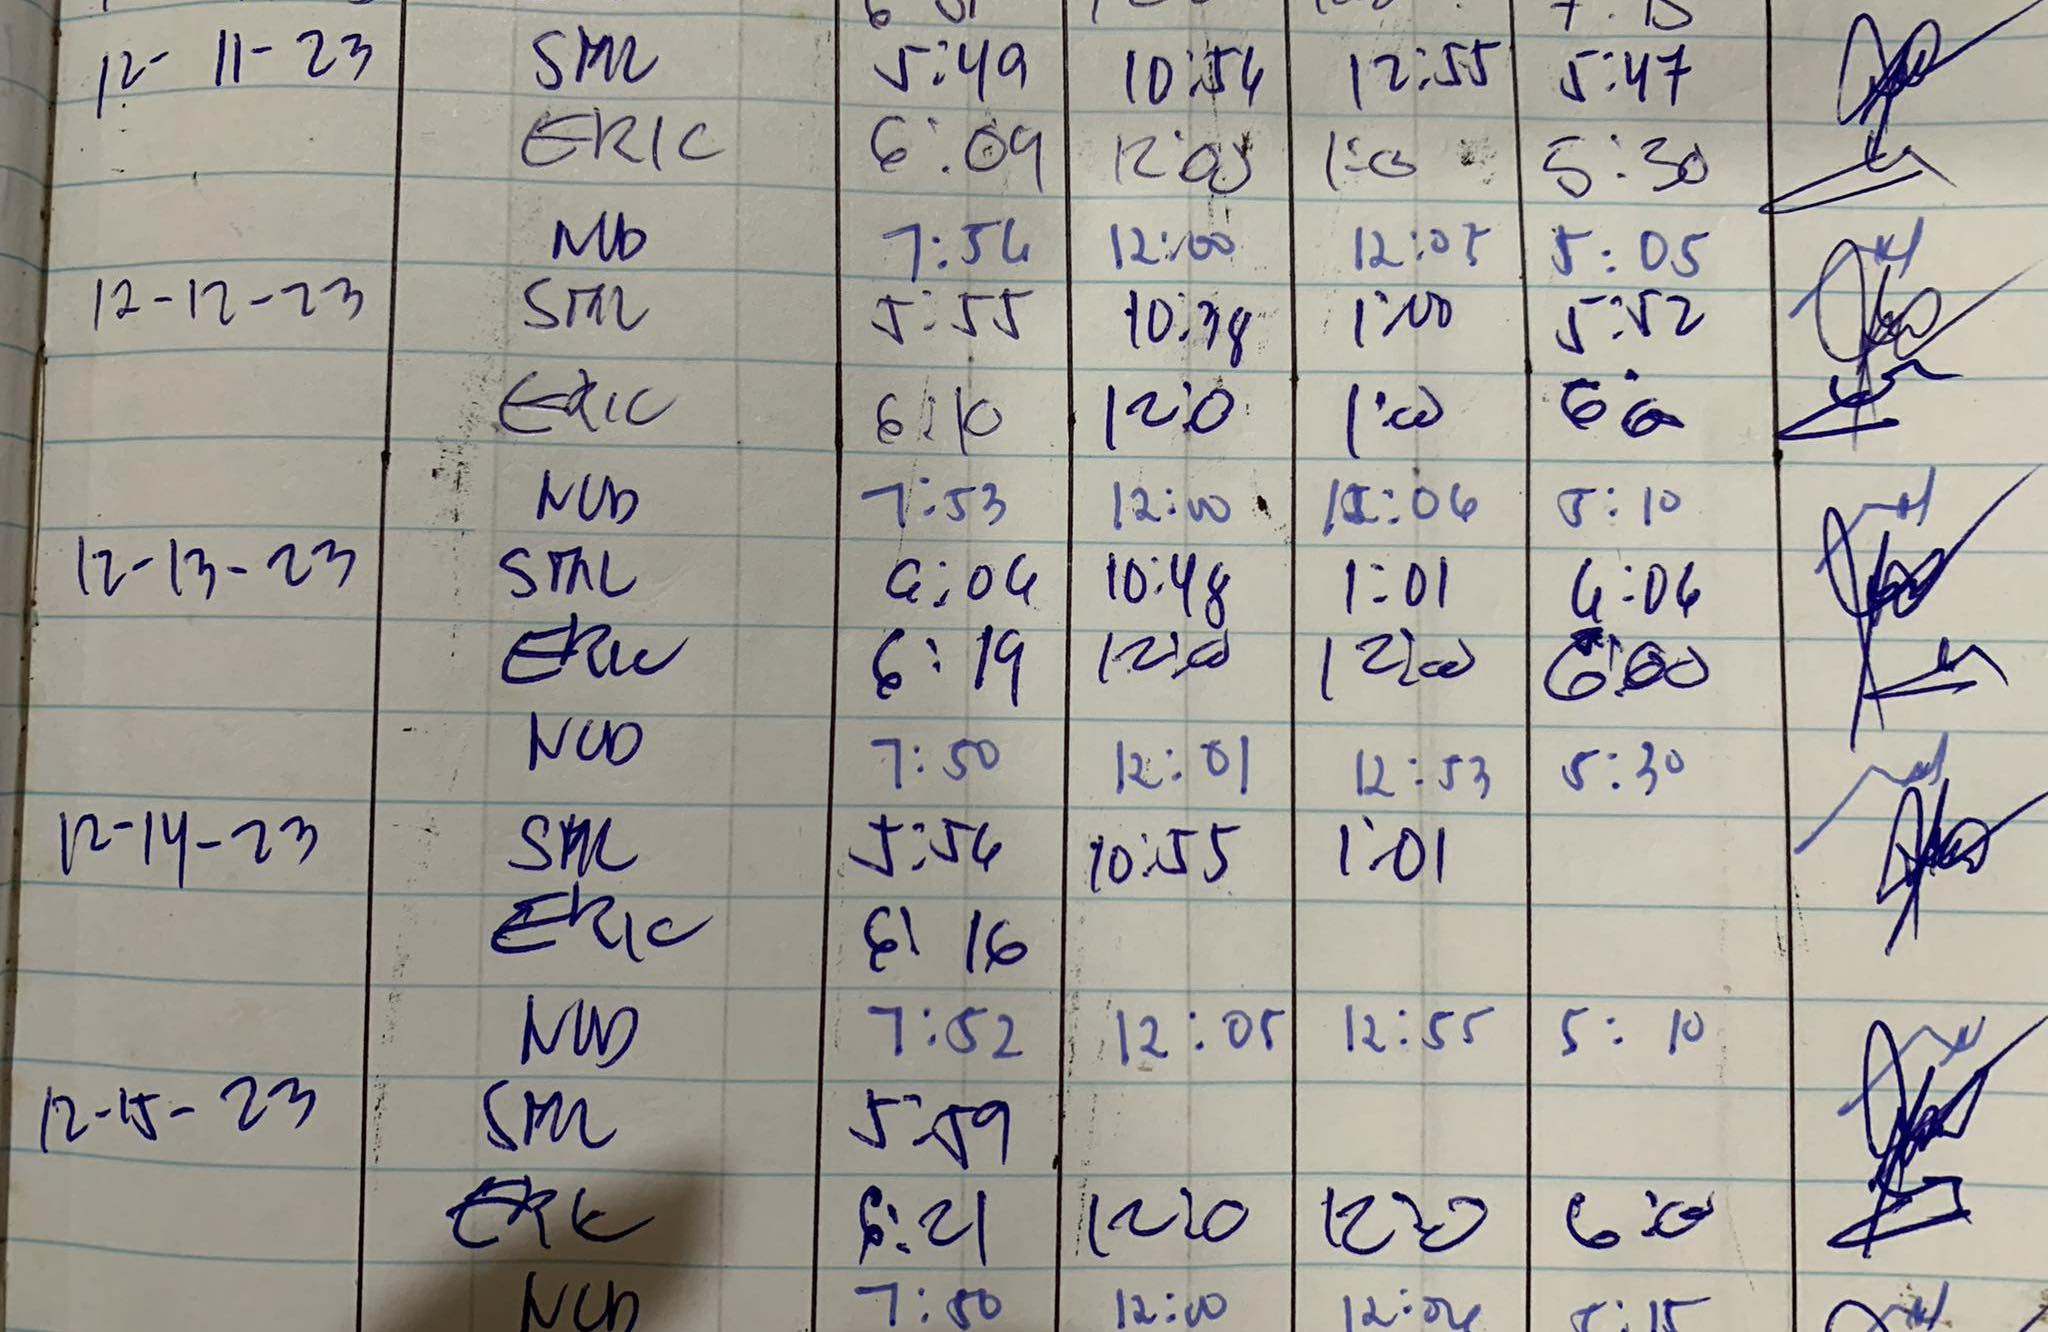 12-11-23 SML 5:49 10:56 12:55 5:47
ERIC 6:09 12:00 1:0 5:30
NCD 7:56 12:00 12:05 5:05
12-12-23 SML 5:55 10:38 1:00 5:52
ERIC 6:10 12:0 1:00 6:0
NCD 7:53 12:00 12:06 5:10
12-13-23 SML 6:06 10:48 1:01 6:06
ERIC 6:19 12:00 12:00 6:00
NCD 7:50 12:01 12:53 5:30
12-14-23 SML 5:56 10:55 1:01
ERIC 6:16
NCD 7:52 12:05 12:55 5:10
12-15-23 SML 5:59
ERIC 6:21 12:0 12:0 6:0
NCD 7:50 12:00 12:06 5:15